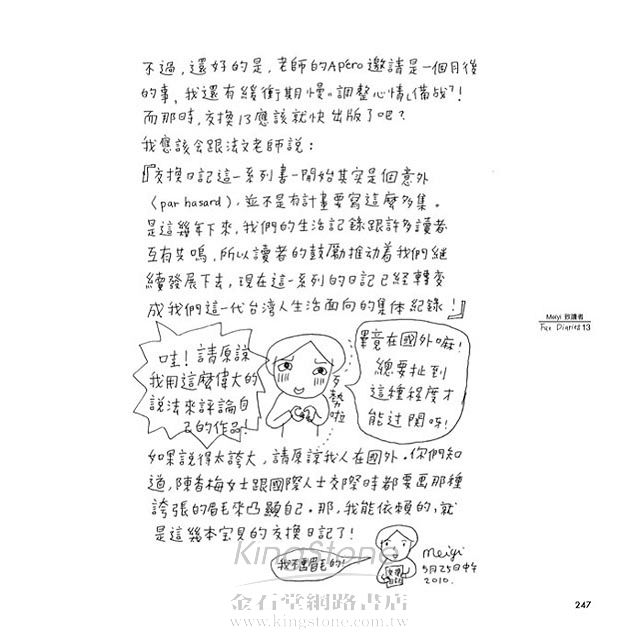 不過，還好的是，老師的Apéro邀請是一個月後
的事，我還有緩衝期慢慢調整心情「備戰」！
而那時，交換13應該就快出版了吧？
我應該會跟法文老師說：
『交換日記這一系列書一開始其實是個意外
(par hasard)，並不是有計畫要寫這麼多集。
是這幾年下來，我們的生活記錄跟許多讀者
互有共鳴，所以讀者的鼓勵推动着我們継
續發展下去，現在這一系列的日記已經轉变
成我們這一代台湾人生活面向的集体紀錄！』
Meiyi 致讀者
Fax Diaries 13
哇！請原諒
我用這麼偉大的
說法來評論自
己的作品！
歹勢啦
畢竟在國外嘛！
總要扯到
這種程度才
能过関呀！
如果說得太誇大，請原諒我人在國外。你們知
道，陳香梅女士跟國際人士交際時都要畫那種
誇張的眉毛來凸顯自己。那，我能依賴的，就
是這幾本宝貝的交換日記了！
我不畫眉毛的！
交換日記
meiyi
5月25日中午
2010.
KingStone
金石堂網路書店
www.kingstone.com.tw
247